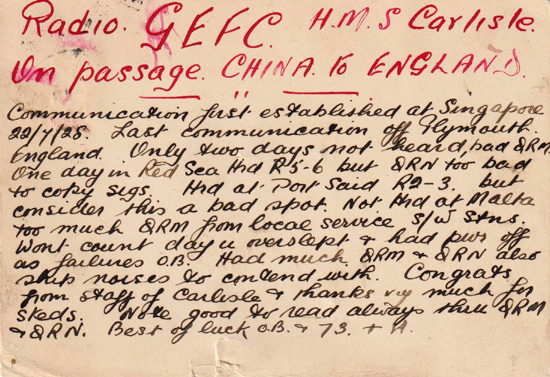 Radio. GEFC. H.M.S Carlisle.
On passage. CHINA. to ENGLAND.
Communication first established at Singapore
22/7/25. Last communication off Plymouth
England. Only two days not heard, bad QRM
One day in Red Sea Hrd R5-6 but QRN too bad
to copy sigs. Hrd at Port Said R2-3. but
consider this a bad spot. Not Hrd at Malta
too much QRM from local service S/W Stns.
Wont count day u overslept & had pwr off
as failures O.B. Had much QRM & QRN also
ship noises to contend with. Congrats
from staff of Carlisle & thanks vy much for
skeds. Note good to read always thru QRM
& QRN. Best of luck O.B. & 73. +